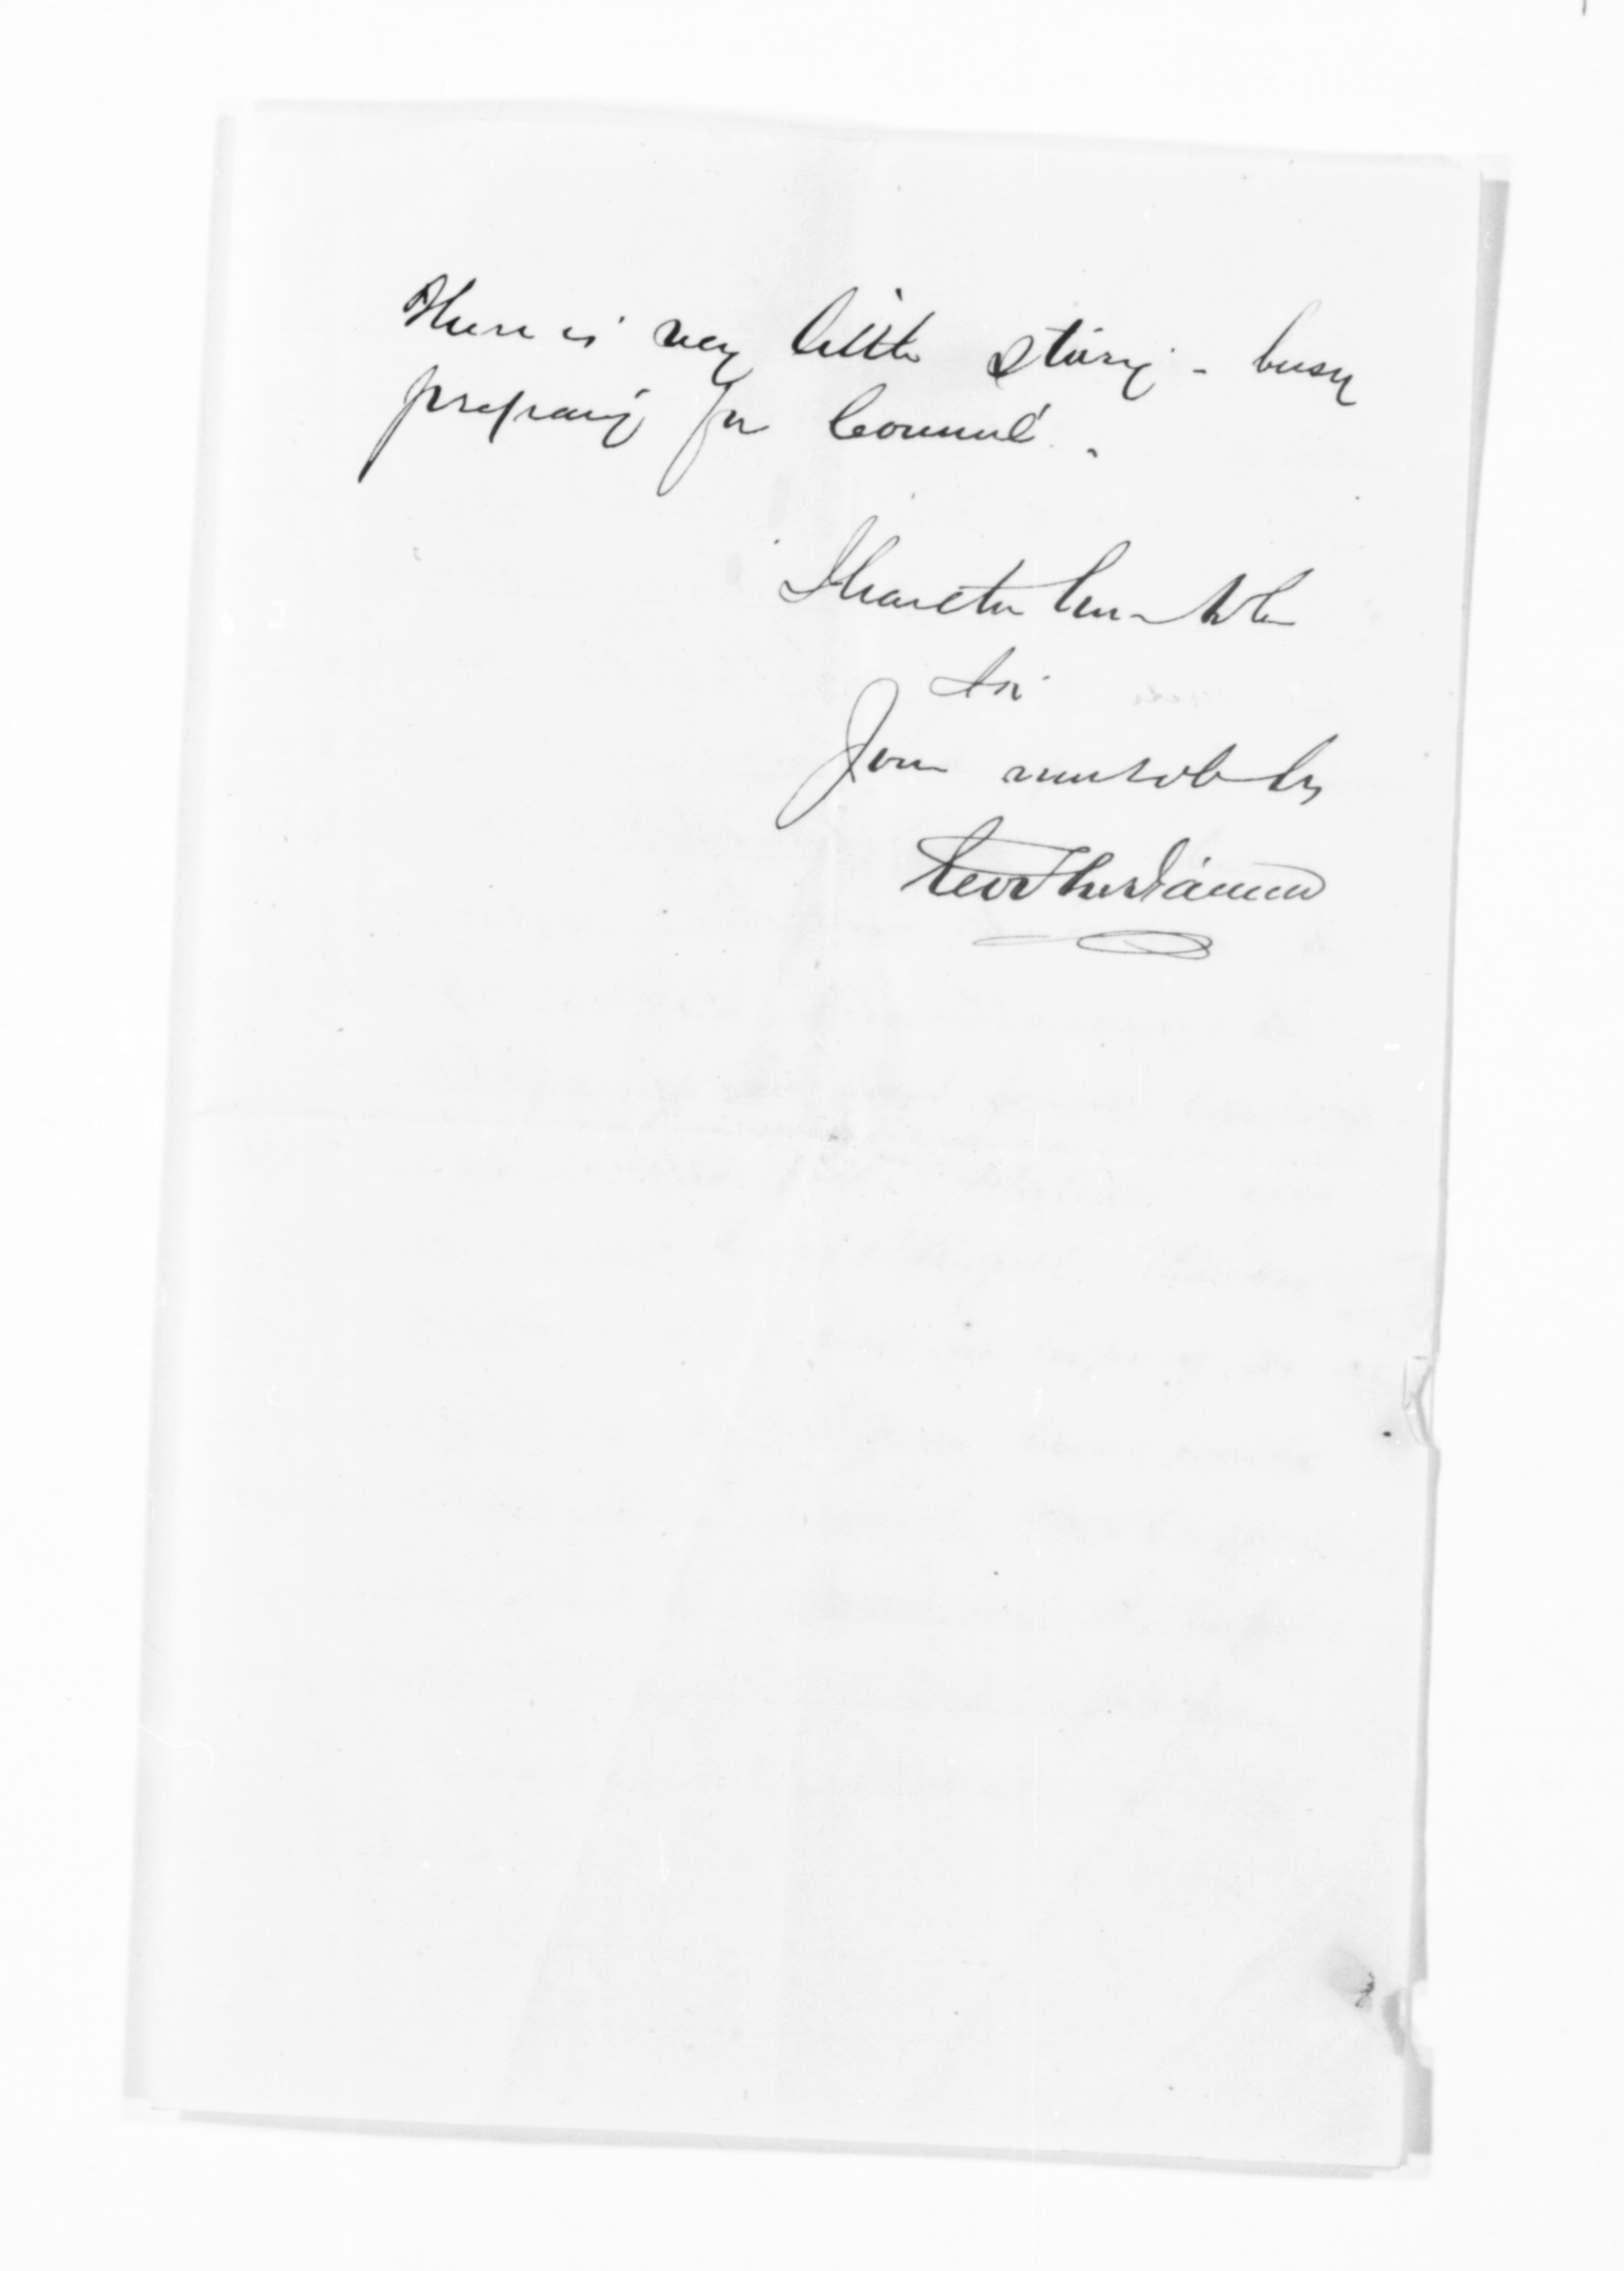 There is very little stiring - busy
preparing for Council.
I have the honor to be
Sir
Your most obt Sv